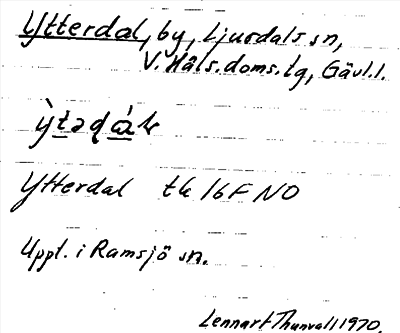 Ytterdal, by, Ljusdals sn,
V. Häls. doms. tg, Gävl. l.
Ytterdal tk 16F NO
Uppt. i Ramsjö sn.
Lennart Thunvall 1970.